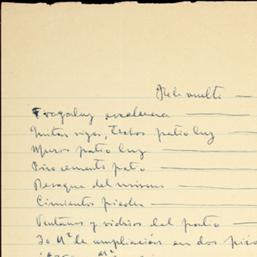 Tragaluz escalera
Juntas vigas, techos patio luz
Muros patio luz
Piso cemento patio
Desague del mismo
Cimientos piedra
Ventanas y vidrios del patio
30 M² de ampliación en dos